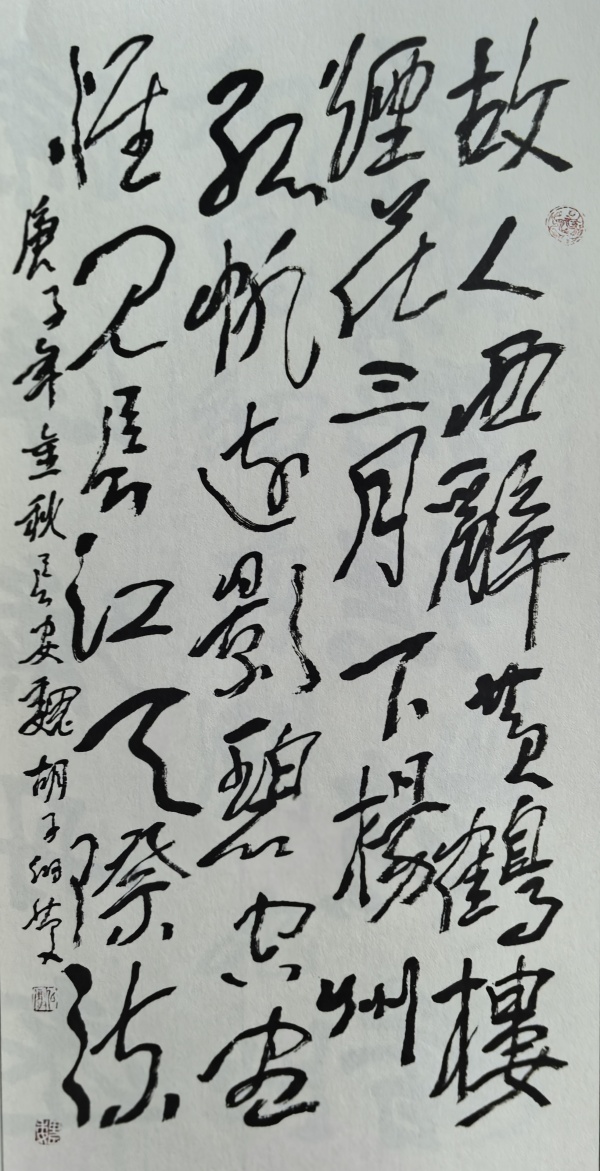 故人西辭黄鶴樓
煙花三月下楊州
孤帆遠影碧空盡
惟見長江天際流
庚子年金秋長安魏胡子